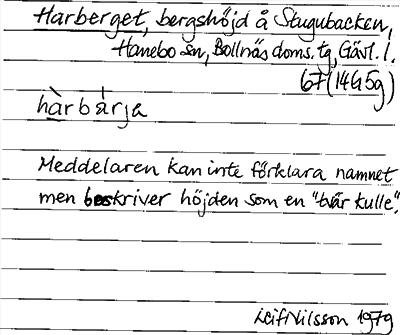 Harberget, bergshöjd å Stugubacken,
Hanebo sn, Bollnäs doms. tg, Gävl. l.
67 (14G5g)
hàrbárja
Meddelaren kan inte förklara namnet
men beskriver höjden som en "tvär kulle".
Leif Nilsson 1979